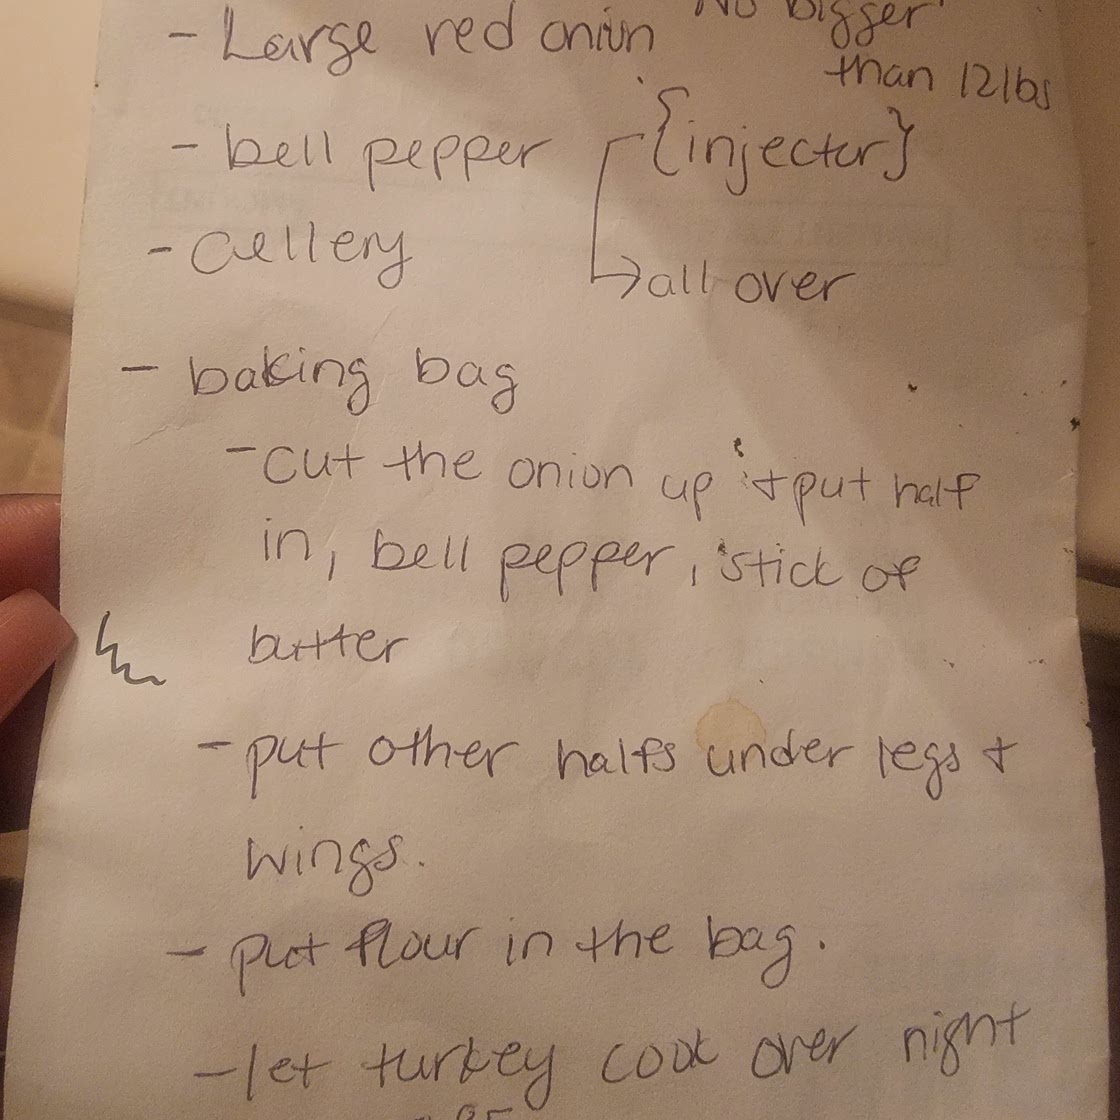 - Large red onion No bigger
than 12lbs
- bell pepper {injector}
- cellery → all over
- baking bag
- cut the onion up + put half
in, bell pepper, stick of
butter
- put other halfs under legs +
wings.
- put flour in the bag.
- let turkey cook over night